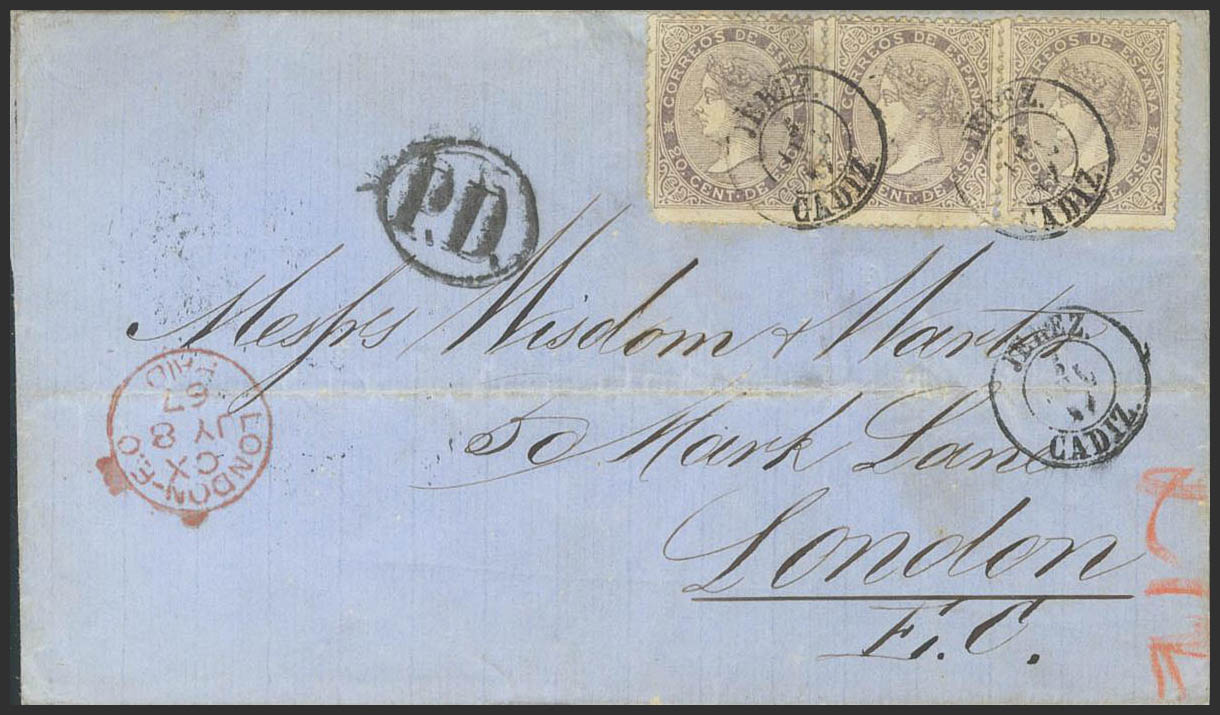 CORREOS DE ESPAÑA
20 CENT. DE ESCo
CORREOS DE ESPAÑA
CENT. DE ESCo
CORREOS DE ESPAÑA
20 DE ESCo
JEREZ.
CADIZ.
JEREZ.
CADIZ.
P.D.
Messrs Wisdom & Warter
50 Mark Lane
London
E.C.
JEREZ.
CADIZ.
LONDON-E.C
CX
JY 8
67
PAID